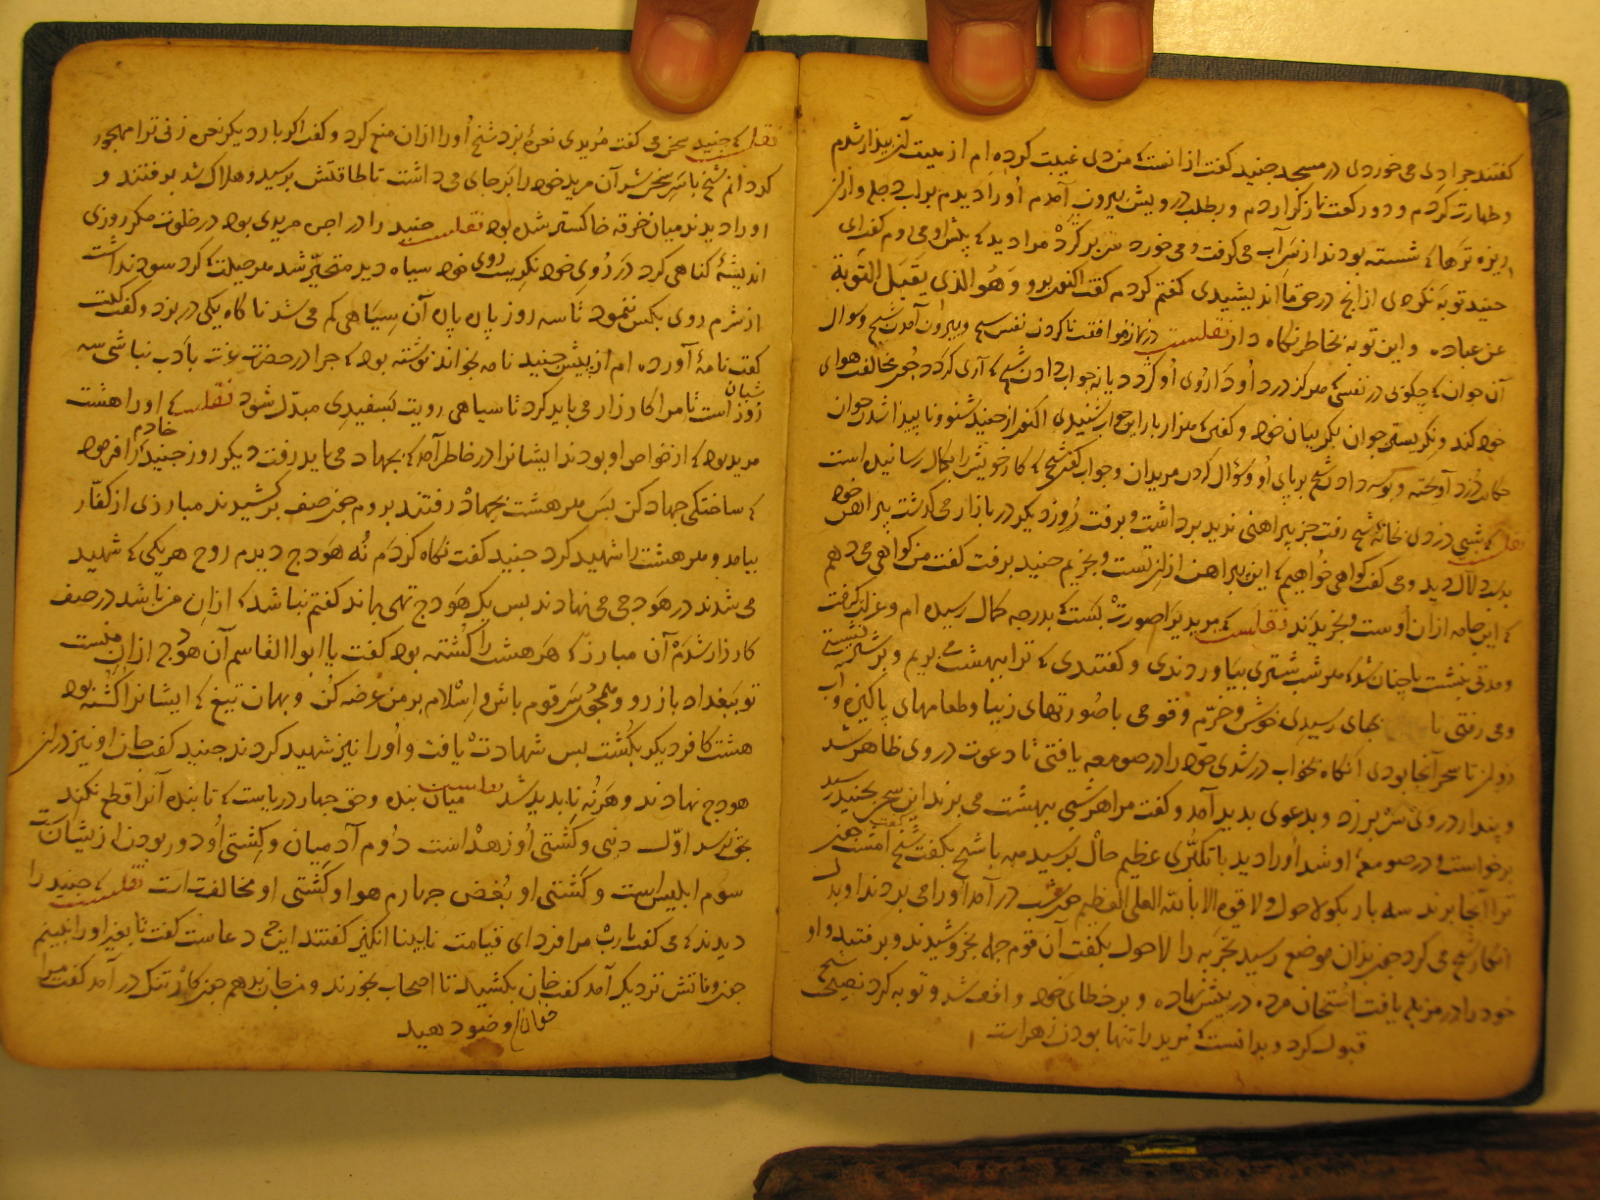 گفتند چرا دی می خوردی در مسجد جنید گفت از آنست که من دی غیبت کرده ام از هیبت آن بیدار شدم
و طهارت کردم و دو رکعت نماز گزاردم و بطلب درویش بیرون آمدم او را دیدم بر لب دجله و از آن
ریزه ترها که شسته بودند از سر آب می گرفت و می خورد سر بر کرد مرا دید که پیش او می روم گفت ای
جنید توبه کردی از آنچ در حق ما اندیشیدی گفتم کردم گفت اکنون برو و هو الذی یقبل التوبة
عن عباده و این توبه بخاطر نگاه دار نقلست در نماز موافقت ناکردن نفس شیخ و بیرون آمدن شیخ و سوال
آن جوان که چگویی در نفسی که هرگز درد او داروی او گردد یا نه جواب دادن شیخ که آری گردد چون مخالفت هوای
خود کند و نگریستن جوان بگریبان خود و گفتن که هزار بار این جواب شنیدی اکنون از جنید شنو و ناپیدا شد جوان
و بوسه داد شیخ بر پای او و سوال کردن مریدان و جواب گفتن شیخ که کار خویش را بکمال رسانیده است
نقلست که شبی دزدی خانه شیخ رفت جز پیراهنی ندید برداشت و برفت روز دیگر در بازار می گذشت پیراهن خود
بدست دلال دید و می گفت گواهی خواهیم که این پیراهن از آن تست و بخریم جنید برفت گفت من گواهی می دهم
که این جامه از آن اوست و بخریدند نقلست که مریدی را صورت بست که بدرجه کمال رسیده ام و عزلت گرفت
و مدتی بنشست تا چنان شد که هر شب شتری بیاوردندی و گفتندی که ترا ببهشت می بریم و بر شتر نشستی
و می رفتی تا بجای رسیدی خوش و خرم و قومی با صورتهای زیبا و طعامهای پاکیزه و آب
روان تا سحر آنجا بودی آنگاه بخواب در شدی خود را در صومعه یافتی تا رعونت در وی ظاهر شد
و پندار در وی سر بر زد و بدعوی بدید آمد و گفت مرا هر شبی ببهشت می برند این سخن بجنید رسید
برخواست و در صومعه او شد او را دید با تکبری عظیم حال پرسید همه با شیخ بگفت شیخ گفت امشب چون
ترا آنجا برند سه بار بگو لاحول ولا قوه الا بالله العلی العظیم چون شب در آمد او را می بردند او بدل
انکار شیخ می کرد چون بدان موضع رسید تجربه را لاحول بگفت آن قوم جمله بخروشیدند و برفتند و او
خود را در مزبله یافت استخوان مرده در پیش نهاده و بر خطای خود واقف شد و توبه کرد نصیحت شیخ
قبول کرد و بدانست که مرید را تنها بودن زهر است
نقلست که جنید سخن می گفت مریدی نعره بزد شیخ او را از آن منع کرد و گفت اگر بار دیگر نعره زنی ترا مهجور
کردانم شیخ با سر سخن شد آن مرید خود را بر جای می داشت تا طاقتش برسید و هلاک شد برفتند و
او را دیدند میان خرقه خاکستر شده بود نقلست جنید را در اجس مریدی بود در خلوت مگر روزی
اندیشه گناهی کرد در روی خود نگریست روی خود سیاه دید متحیر شد هر حیلت که کرد سود نداشت
از شرم روی بکس ننمود تا سه روز پاره پاره آن سیاهی کم می شد ناگاه یکی در بزد و گفت کیست
گفت نامه آورده ام از پیش جنید نامه بخواند نوشته بود که چرا در حضرت عزت بادب نباشی سه
شبان روز است تا مرا کازری می باید کرد تا سیاهی رویت بسفیدی مبدل شود نقلست که او را هشت
مرید بود که از خواص او بودند ایشانرا در خاطر آمد که بجهاد می باید رفت دیگر روز جنید خادم را فرمود
که ساختگی جهاد کن پس هر هشت بجهاد رفتند بروم چون صف بر کشیدند مبارزی از کفار
بیامد و هر هشت را شهید کرد جنید گفت نگاه کردم نه هودج دیدم روح هر یکی که شهید
می شدند در هودجی می نهادند پس یک هودج تهی بماند گفتم نباشد که از آن من باشد در صف
کارزار شدم آن مبارز که هر هشت را کشته بود گفت یا ابوالقاسم آن هودج از آن منست
تو ببغداد باز رو و همچون سر قوم باش و اسلام بر من عرضه کن و بهمان تیغ که ایشانرا کشته بود
هشت کافر دیگر بکشت پس شهادت یافت و او را نیز شهید کردند جنید گفت جان او نیز در آن
هودج نهادند و هر نه ناپدید شد نقلست میان بنده و حق چهار دریاست که تا بنده آنرا قطع نکند
بحق نرسد اول دنیی و کشتی او زهد است دوم آدمیان و کشتی او دور بودن از ایشان
سوم ابلیس است و کشتی او بغض چهارم هوا و کشتی او مخالفت است نقلست که جنید را
دیدند که می گفت یا رب مرا فردای قیامت نابینا انگیز گفتند این چه دعاست گفت تا بغیر او را نبینم
چون وفاتش نزدیک آمد گفت خوان بکشید تا اصحاب بخورند و من جان بدهم چون کار تنگ در آمد گفت مرا
خوان / وضو دهید